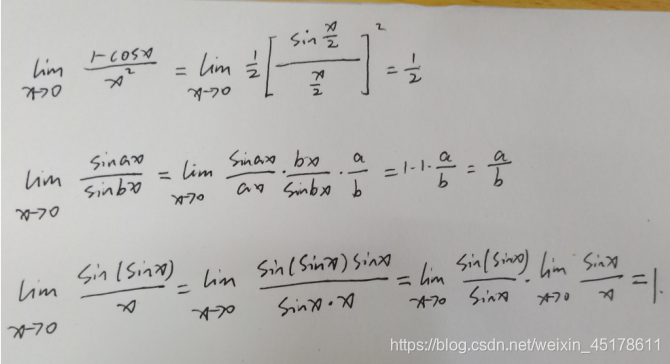 lim x→0 (1-cosx)/x² = lim x→0 1/2 [ (sin x/2)/(x/2) ]² = 1/2
lim x→0 (sinax)/(sinbx) = lim x→0 (sinax)/(ax) · (bx)/(sinbx) · a/b = 1·1·a/b = a/b
lim x→0 (sin(sinx))/x = lim x→0 (sin(sinx) sinx)/(sinx·x) = lim x→0 (sin(sinx))/(sinx) · lim x→0 (sinx)/x = 1.
https://blog.csdn.net/weixin_45178611